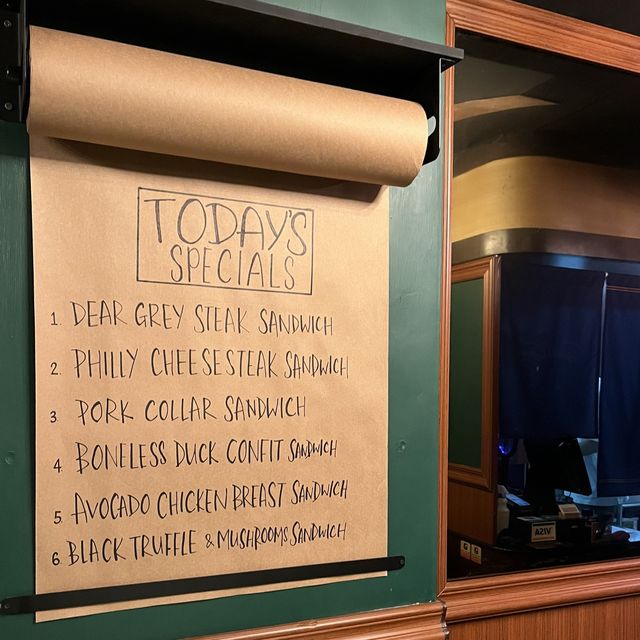 TODAY'S
SPECIALS
1. DEAR GREY STEAK SANDWICH
2. PHILLY CHEESESTEAK SANDWICH
3. PORK COLLAR SANDWICH
4. BONELESS DUCK CONFIT SANDWICH
5. AVOCADO CHICKEN BREAST SANDWICH
6. BLACK TRUFFLE & MUSHROOMS SANDWICH
VISA